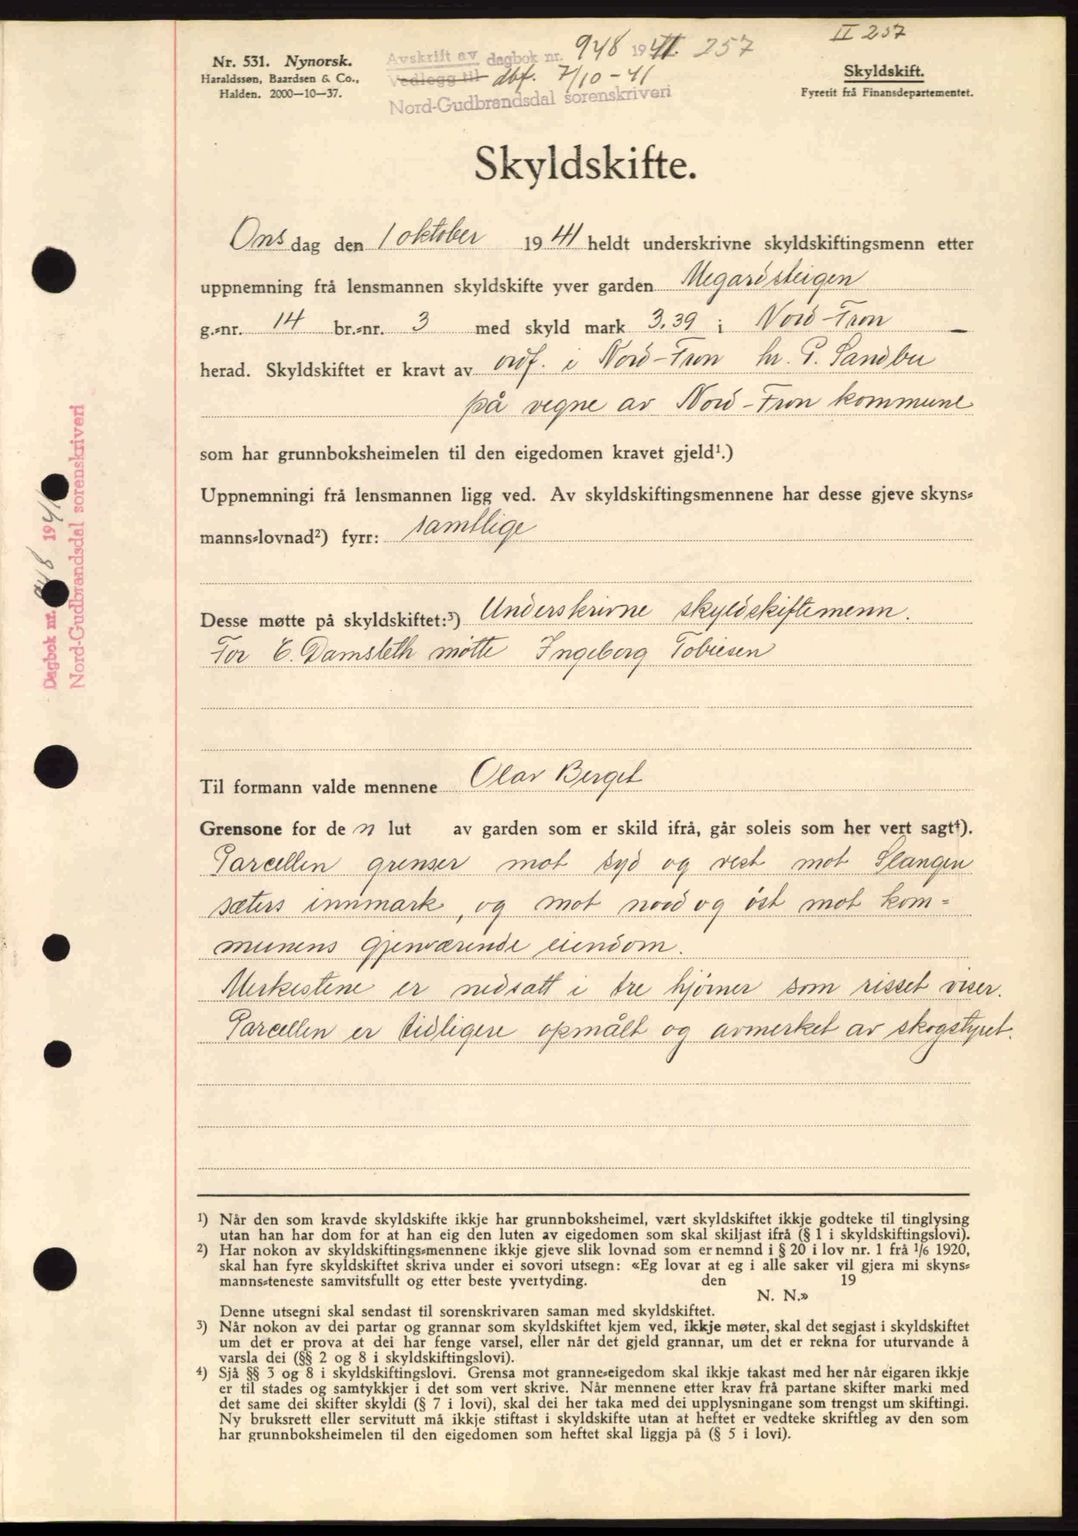 II 257
Nr. 531. Nynorsk.
Haraldssøn, Baardsen & Co.,
Halden. 2000—10—37.
Avskrift av dagbok nr. 948 1941. 257
Vedlegg til dbf. 7/10-41
Nord-Gudbrandsdal sorenskriveri
Skyldskift.
Fyreeit frå Finansdepartementet.
Skyldskifte.
Onsdag den 1 oktober 1941 heldt underskrivne skyldskiftingsmenn etter
uppnemning frå lensmannen skyldskifte yver garden Megardsteigen
g.=nr. 14 br.=nr. 3 med skyld mark 3,39 i Nord-Fron
herad. Skyldskiftet er kravt av ordf. i Nord-Fron hr. P. Sandbu
på vegne av Nord-Fron kommune
som har grunnboksheimelen til den eigedomen kravet gjeld¹.)
Uppnemningi frå lensmannen ligg ved. Av skyldskiftingsmennene har desse gjeve skyns=
manns=lovnad²) fyrr: samtlige
Desse møtte på skyldskiftet:³) Underskrivne skyldskiftemenn.
For E. Damsleth møtte Ingeborg Tobiesen
Til formann valde mennene Olav Berget
Grensone for den lut av garden som er skild ifrå, går soleis som her vert sagt⁴).
Parcellen grenser mot syd og vest mot Slangen
sæters innmark, og mot nord og öst mot kom=
munens gjenværende eiendom.
Merkestene er nedsatt i tre hjörner som risset viser.
Parcellen er tidligere opmålt og avmerket av skogstyret.
¹) Når den som kravde skyldskifte ikkje har grunnboksheimel, vært skyldskiftet ikkje godteke til tinglysing
utan han har dom for at han eig den luten av eigedomen som skal skiljast ifrå (§ 1 i skyldskiftingslovi).
²) Har nokon av skyldskiftings=mennene ikkje gjeve slik lovnad som er nemnd i § 20 i lov nr. 1 frå 1/6 1920,
skal han fyre skyldskiftet skriva under ei sovori utsegn: «Eg lovar at eg i alle saker vil gjera mi skyns=
manns=teneste samvitsfullt og etter beste yvertyding. den 19
N. N.»
Denne utsegni skal sendast til sorenskrivaren saman med skyldskiftet.
³) Når nokon av dei partar og grannar som skyldskiftet kjem ved, ikkje møter, skal det segjast i skyldskiftet
um det er prova at dei har fenge varsel, eller når det gjeld grannar, um det er rekna for uturvande å
varsla dei (§§ 2 og 8 i skyldskiftingslovi).
⁴) Sjå §§ 3 og 8 i skyldskiftingslovi. Grensa mot granne=eigedom skal ikkje takast med her når eigaren ikkje
er til stades og samtykkjer i det som vert skrive. Når mennene etter krav frå partane skifter marki med
det same dei skifter skyldi (§ 7 i lovi), skal dei her taka med dei upplysningane som trengst um skiftingi.
Ny bruksrett eller servitutt må ikkje stiftast i skyldskifte utan at heftet er vedteke skriftleg av den som
har grunnboksheimelen til den eigedomen som heftet skal liggja på (§ 5 i lovi).
Dagbok nr. 948 1941
Nord-Gudbrandsdal sorenskriveri